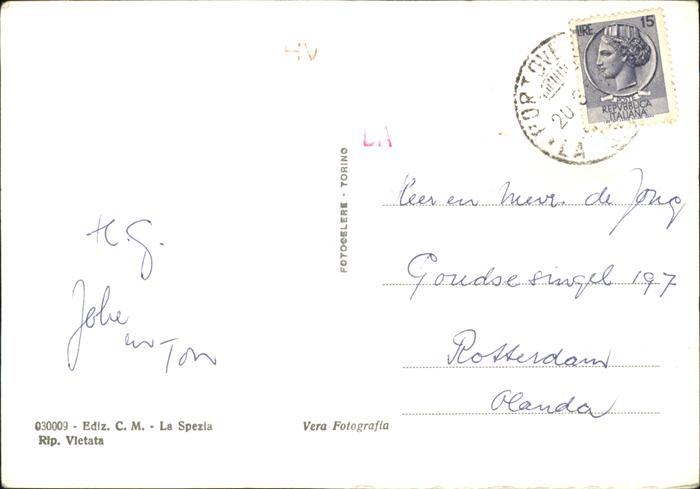 LIRE 15
POSTE
REPVBBLICA
ITALIANA
PORTOVE
20
LA
FOTOCELERE - TORINO
Heer en Mevr. de Jong
Goudsesingel 197
Rotterdam
Olanda
H.G.
Jobe
en Ton
030009 - Ediz. C. M. - La Spezia
Rip. Vietata
Vera Fotografia